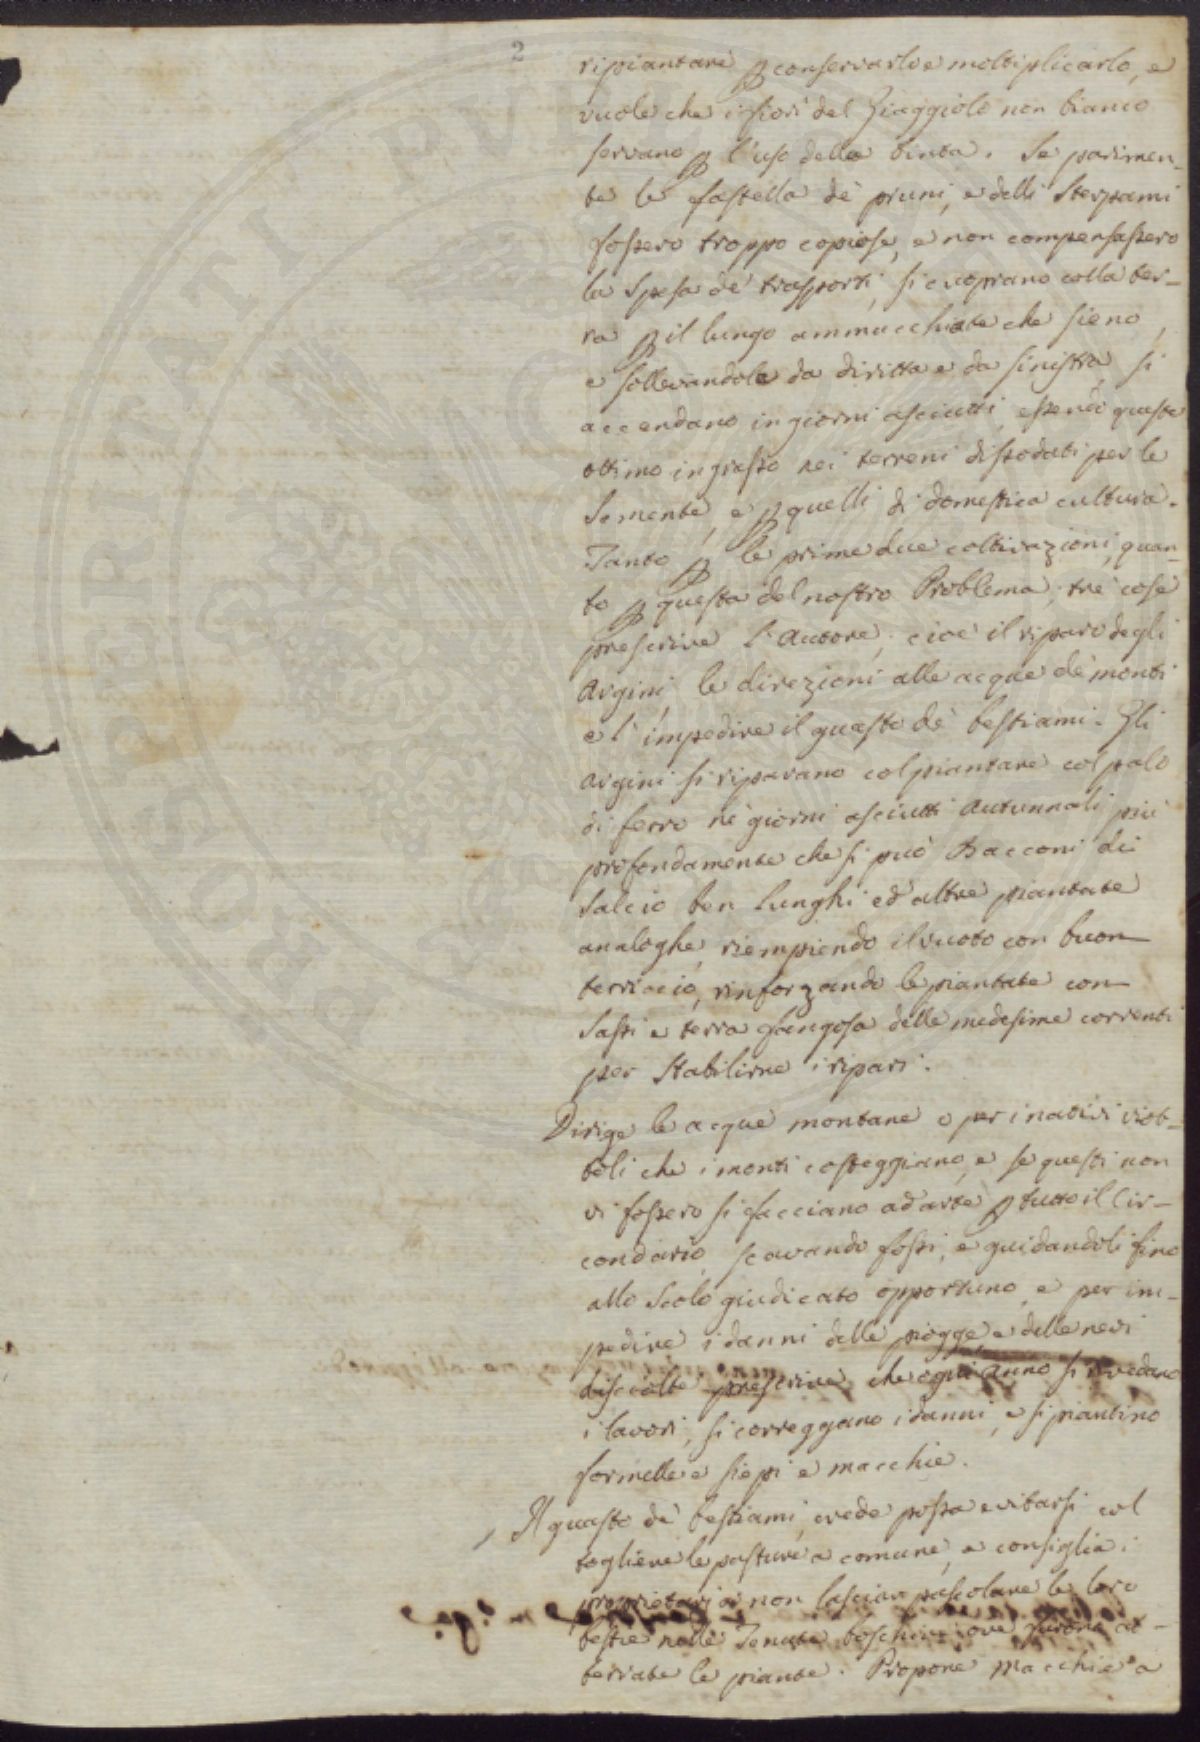 2
ripiantare p conservarlo e moltiplicarlo, e
vuole che i fiori del Giaggiolo non bianco
servano p l'uso della tinta. Se parimen-
te le fastella de' pruni, e delli Sterpami
fossero troppo copiose, e non compensassero
la Spesa de' trasporti, si cuoprano colla ter-
ra p il lungo ammucchiate che sieno,
e sollevandole da diritta e da sinistra, si
accendano in giorni asciutti, essendo questo
ottimo ingrasso nei terreni dissodati per le
Semente, e p quelli di domestica cultura.
Tanto p le prime due coltivazioni, quan-
to p questa del nostro Problema, tre cose
prescrive l'Autore, cioè il riparo degli
Argini, le direzioni alle acque de' monti
e l'impedire il guasto de' bestiami. Gli
argini si riparano col piantare col palo
di ferro ne' giorni asciutti Autunnali più
profondamente che si può Bacconi di
Salcio ben lunghi ed altre piantate
analoghe, riempiendo il vuoto con buon
terriccio, rinforzando le piantate con
Sassi e terra fangosa delle medesime correnti
per Stabilirne i ripari.
Dirige le acque montane o per i nativi viot-
toli che i monti costeggiano, e se questi non
vi fossero si facciano ad arte p tutto il Cir-
condario, scavando fossi, e guidandoli fino
allo Scolo giudicato opportuno, e per im-
pedire i danni delle piogge, e delle nevi
disciolte prescrive che ogni anno si rivedano
i lavori, si correggano i danni, e si piantino
formelle e siepi e macchie.
Il guasto de' bestiami, crede possa evitarsi col
togliere le pasture a comune, e consiglia i
proprietarj a non lasciar pascolare le loro
bestie nelle Tenute boschive ove furono at-
terrate le piante. Propone macchie a